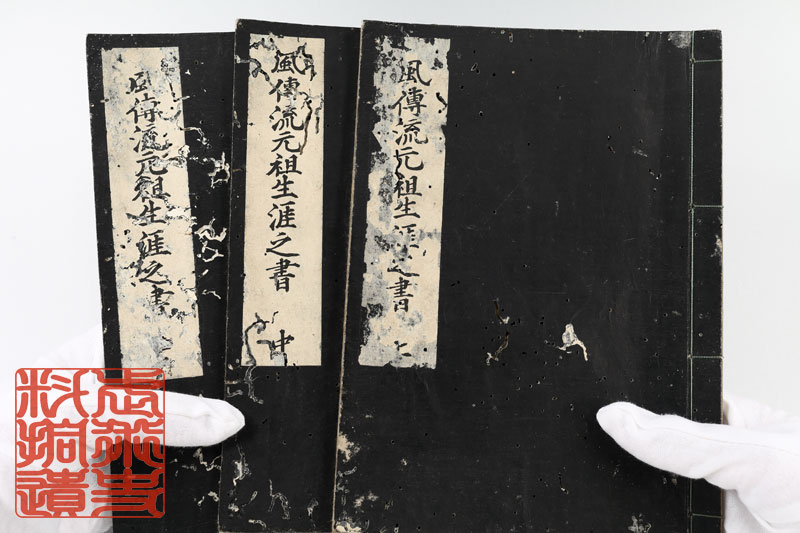 風傳流元祖生涯之書 上
風傳流元祖生涯之書 中
風傳流元祖生涯之書
武術史
料拾遺